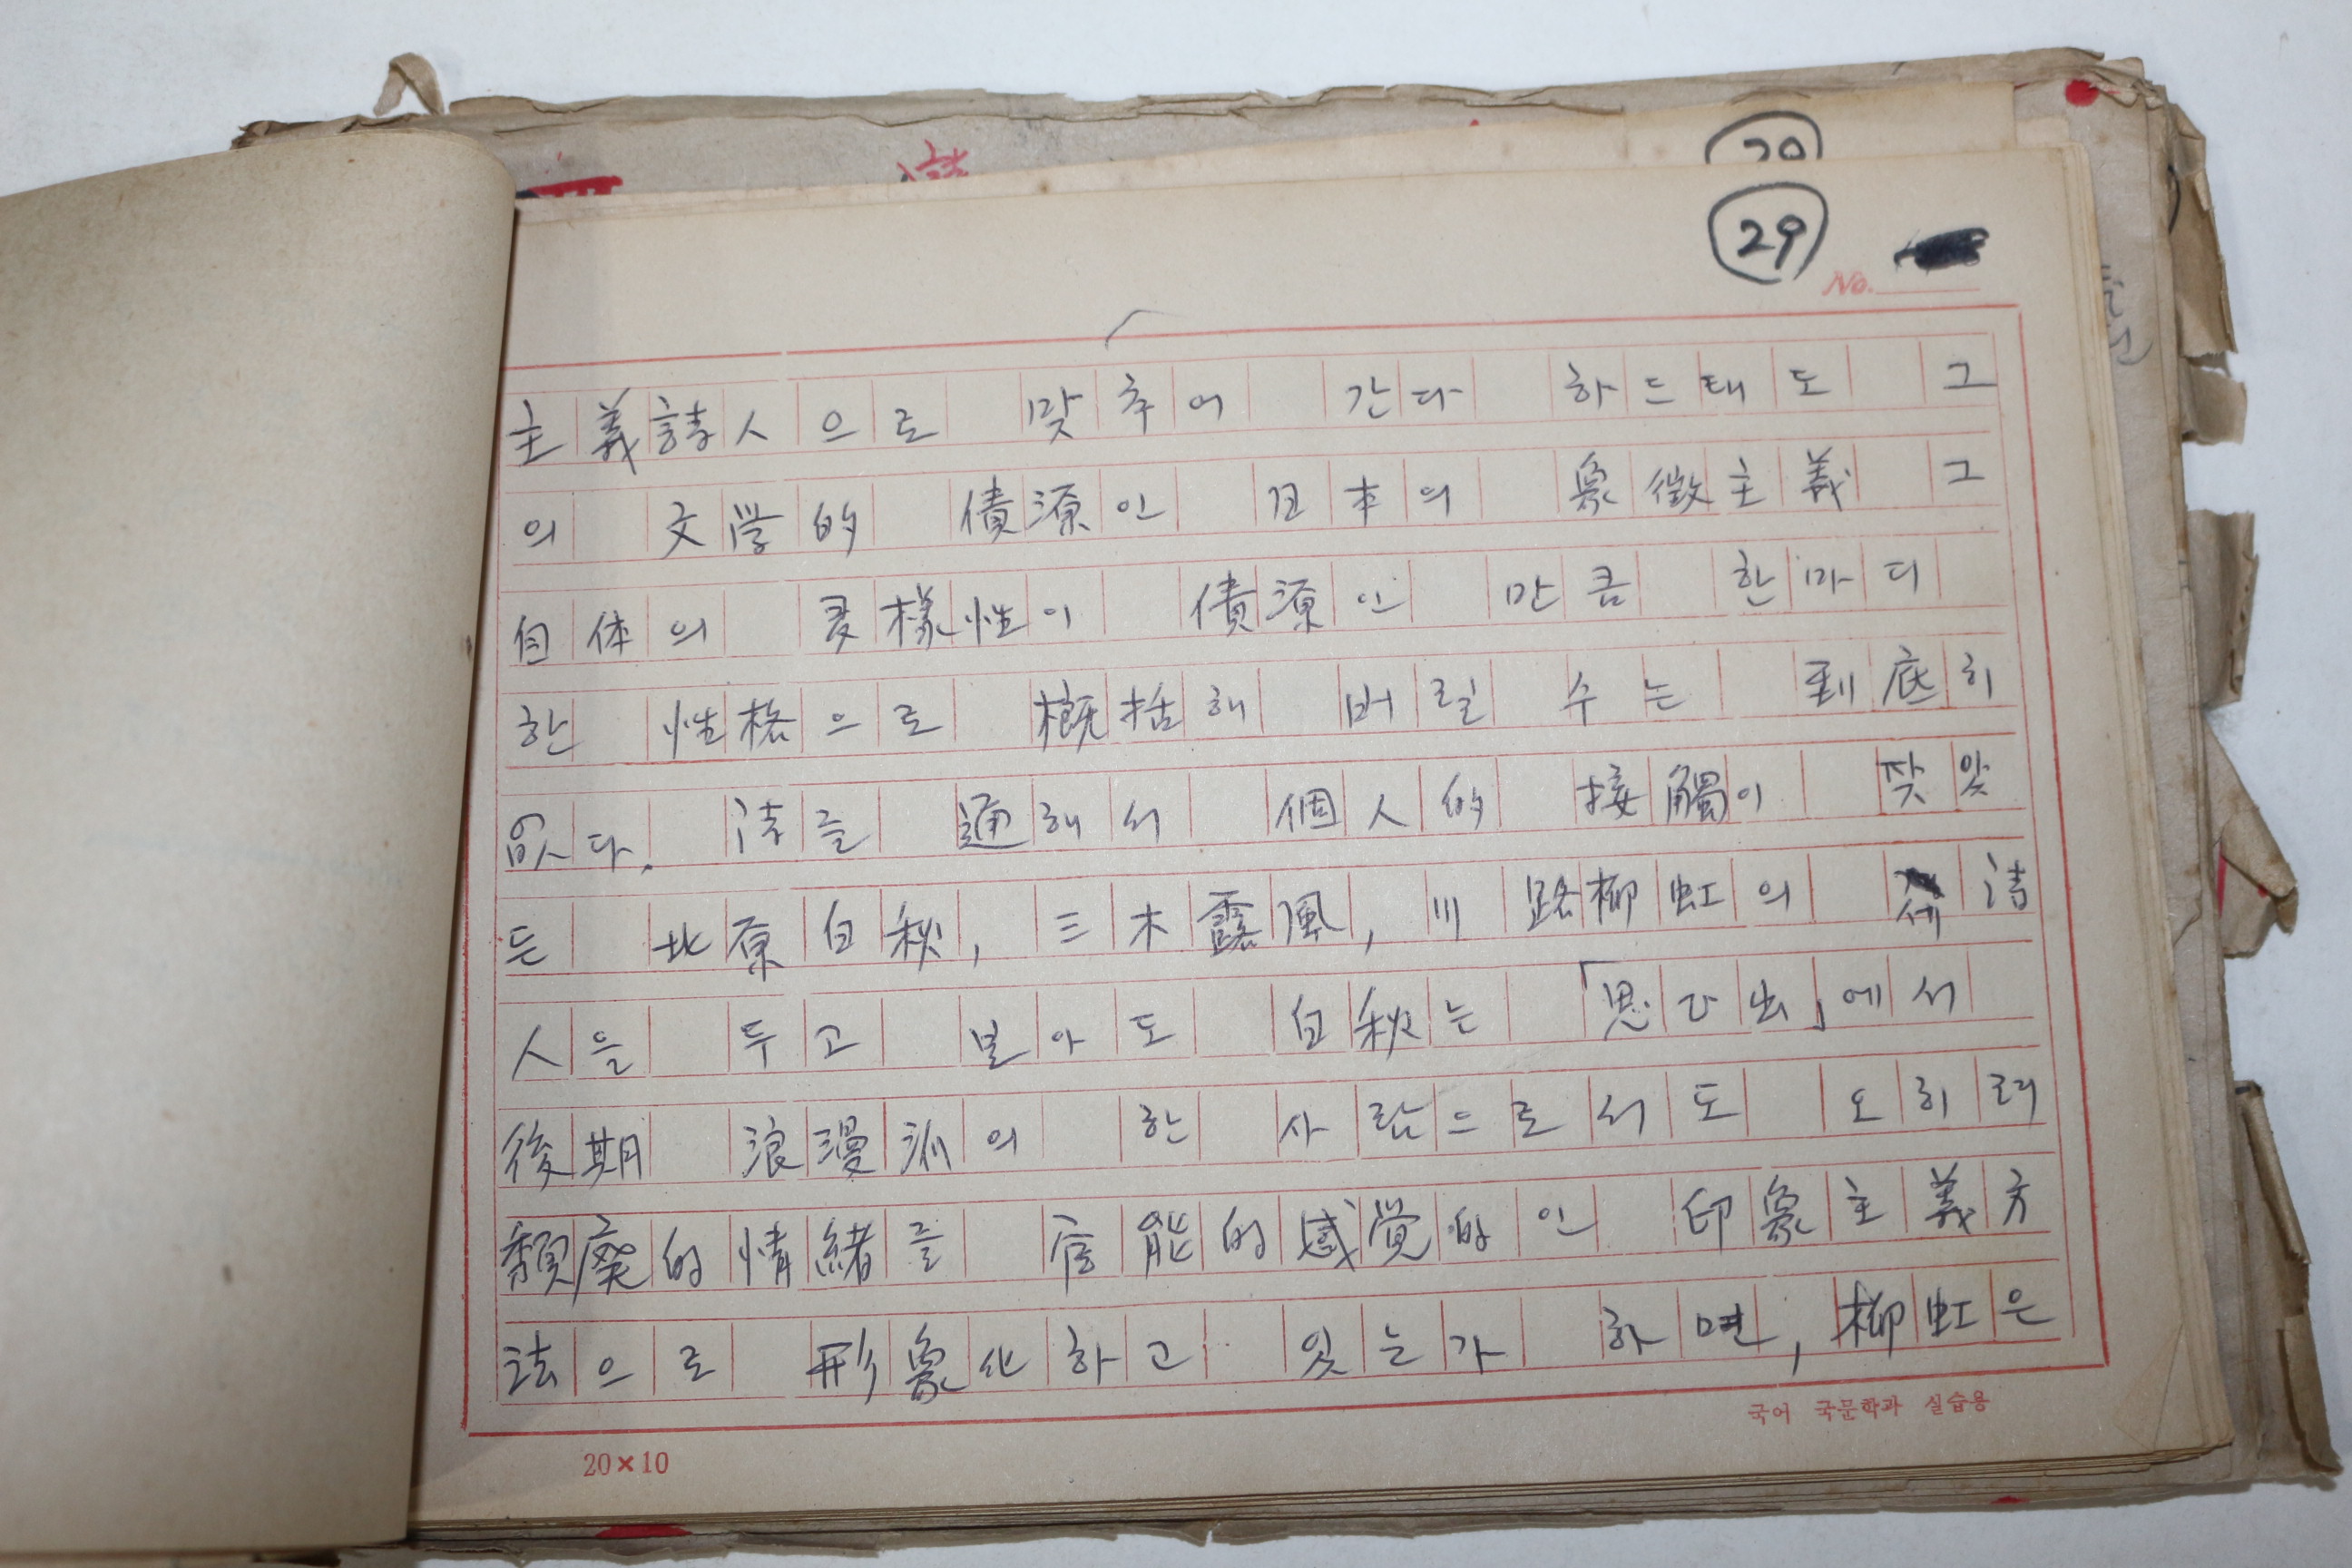 29
No.
主義詩人으로 맞추어 간다 하드태도 그
의 文学的 債源인 日本의 象徵主義 그
自体의 多樣性이 債源인 만큼 한마디
한 性格으로 概括해 버릴 수는 到底히
없다. 詩를 通해서 個人的 接觸이 잦았
든 北原白秋, 三木露風, 川路柳虹의 세 詩
人을 두고 보아도 白秋는 「思ひ出」에서
後期 浪漫派의 한 사람으로서도 오히려
頹廃的情緒를 官能的感覚的인 印象主義方
法으로 形象化하고 있는가 하면, 柳虹은
국어 국문학과 실습용
20×10